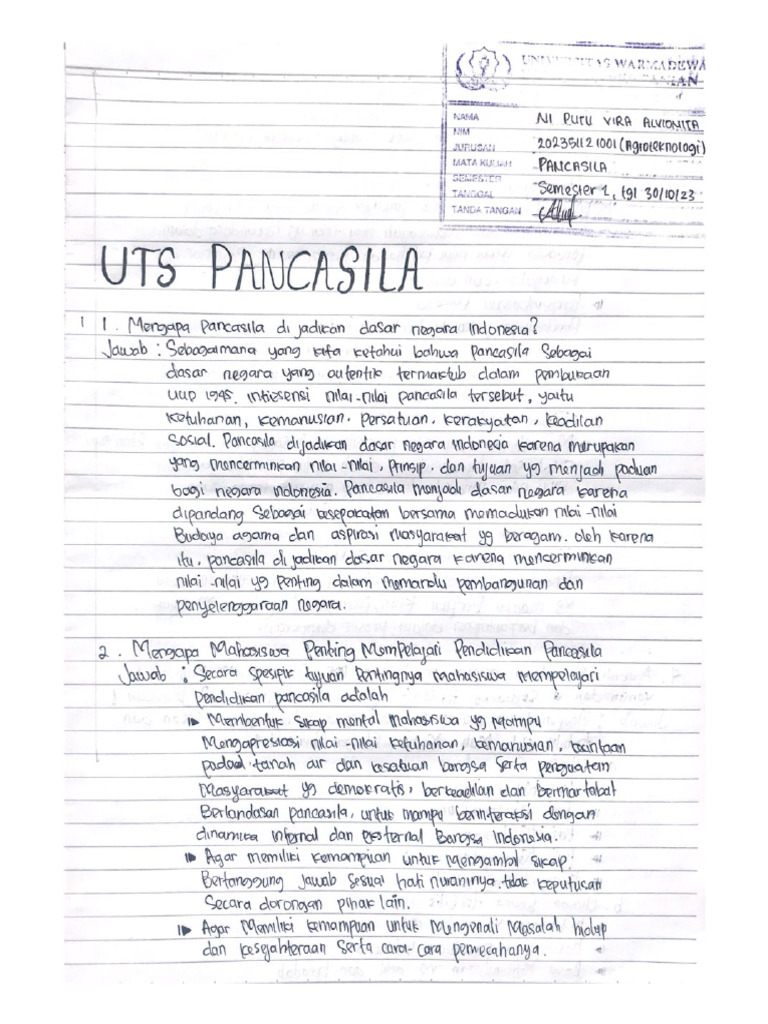 UNIVERSITAS WARMADEWA
NAMA NI PUTU VIRA ALVIONITA
NIM
JURUSAN 202351121001 (Agroteknologi)
MATA KULIAH PANCASILA
SEMESTER
TANGGAL Semester 1, tgl 30/10/23
TANDA TANGAN
UTS PANCASILA
1 1. Mengapa Pancasila di jadikan dasar negara Indonesia?
Jawab : Sebagaimana yang kita ketahui bahwa pancasila sebagai
dasar negara yang autentik termaktub dalam pembukaan
UUD 1945. intiesensi nilai-nilai pancasila tersebut, yaitu
Ketuhanan, kemanusian. Persatuan, kerakyatan, keadilan
Sosial. Pancasila dijadikan dasar negara Indonesia karena merupakan
yang mencerminkan nilai-nilai, Prinsip, dan tujuan yg menjadi paduan
bagi negara indonesia. Pancasila menjadi dasar negara karena
dipandang sebagai kesepakatan bersama memadukan nilai-nilai
Budaya agama dan aspirasi masyarakat yg beragam. oleh karena
itu, pancasila di jadikan dasar negara karena mencerminkan
nilai-nilai yg penting dalam memandu pembangunan dan
penyelenggaraan negara.
2. Mengapa Mahasiswa Penting Mempelajari Pendidikan Pancasila
Jawab : Secara spesipik tujuan Pentingnya mahasiswa mempelajari
Pendidikan pancasila adalah
Membentuk sikap mental mahasiswa yg mampu
Mengapresiasi nilai-nilai ketuhanan, kemanusian, kecintaan
pada tanah air dan kesatuan bangsa serta penguatan
Masyarakat yg demokratis, berkeadilan dan bermartabat
Berlandasan pancasila, untuk mampu berinteraksi dengan
dinamika internal dan eksternal Bangsa Indonesia.
Agar memiliki kemampuan untuk mengambil sikap
Bertanggung jawab sesuai hati nuraninya. tidak keputusan
Secara dorongan pihak lain.
Agar Memiliki kemampuan untuk Mengenali Masalah hidup
dan kesejahteraan serta cara-cara pemecahanya.